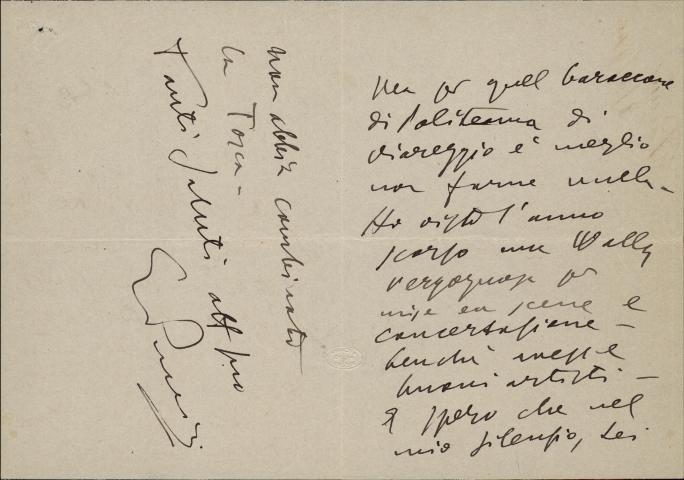 Ma per quell baraccone
di Politeama di
Viareggio è meglio
non farne nulla -
Ho visto l'anno
scorso una Wally
vergognosa per
mise en scene e
concertazione -
benchè avesse
buoni artisti -
E spero che nel
mio silenzio, Lei
non abbia combinato
la Tosca -
Tanti saluti aff suo
G Puccini